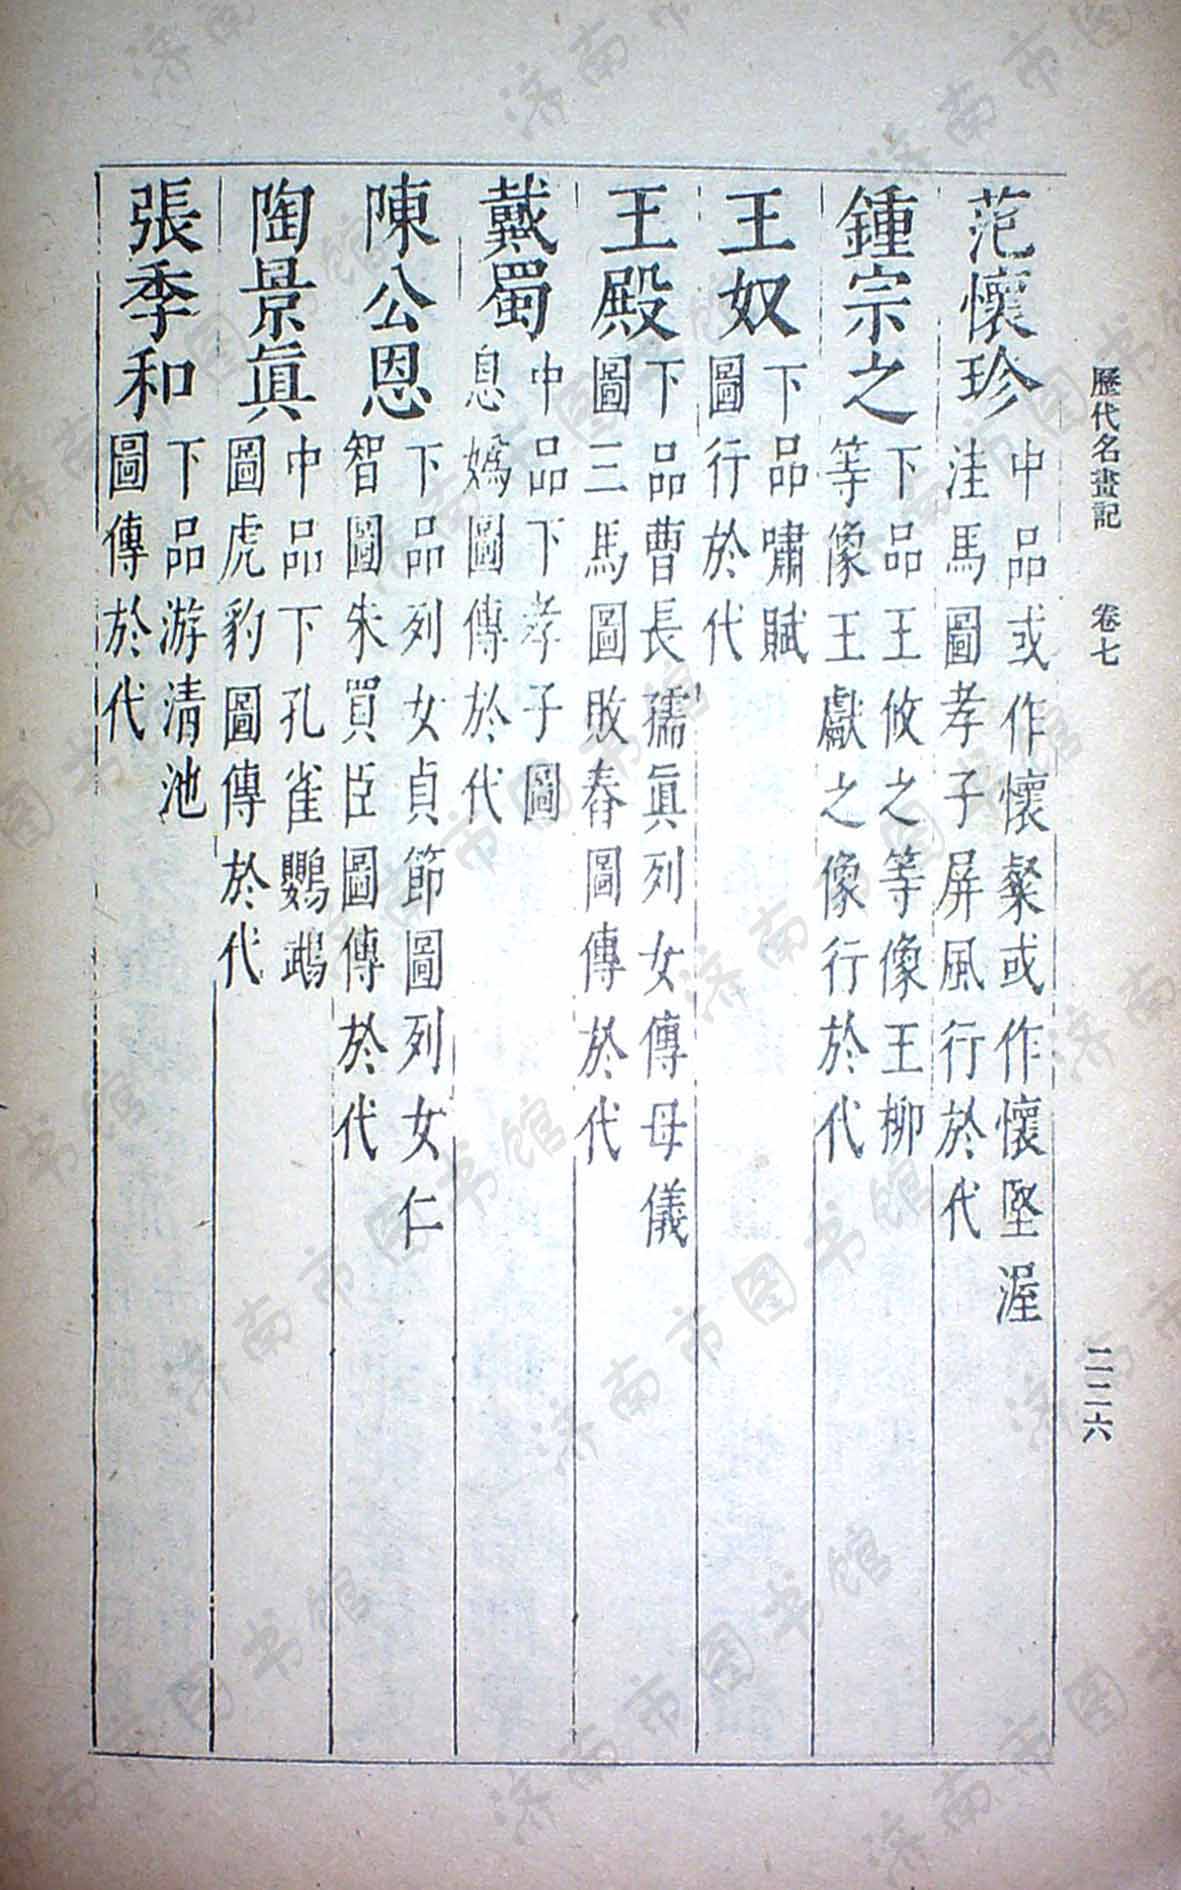 歷代名畫記　卷七　二二六
范懷珍
中品或作懷粲或作懷堅渥
洼馬圖孝子屏風行於代
鍾宗之
下品王攸之等像王柳
等像王獻之像行於代
王奴
下品嘯賦
圖行於代
王殿
下品曹長孺眞列女傳母儀
圖三馬圖敗春圖傳於代
戴蜀
中品下孝子圖
息嬀圖傳於代
陳公恩
下品列女貞節圖列女仁
智圖朱買臣圖傳於代
陶景眞
中品下孔雀鸚鵡
圖虎豹圖傳於代
張季和
下品游清池
圖傳於代
济南市图书馆